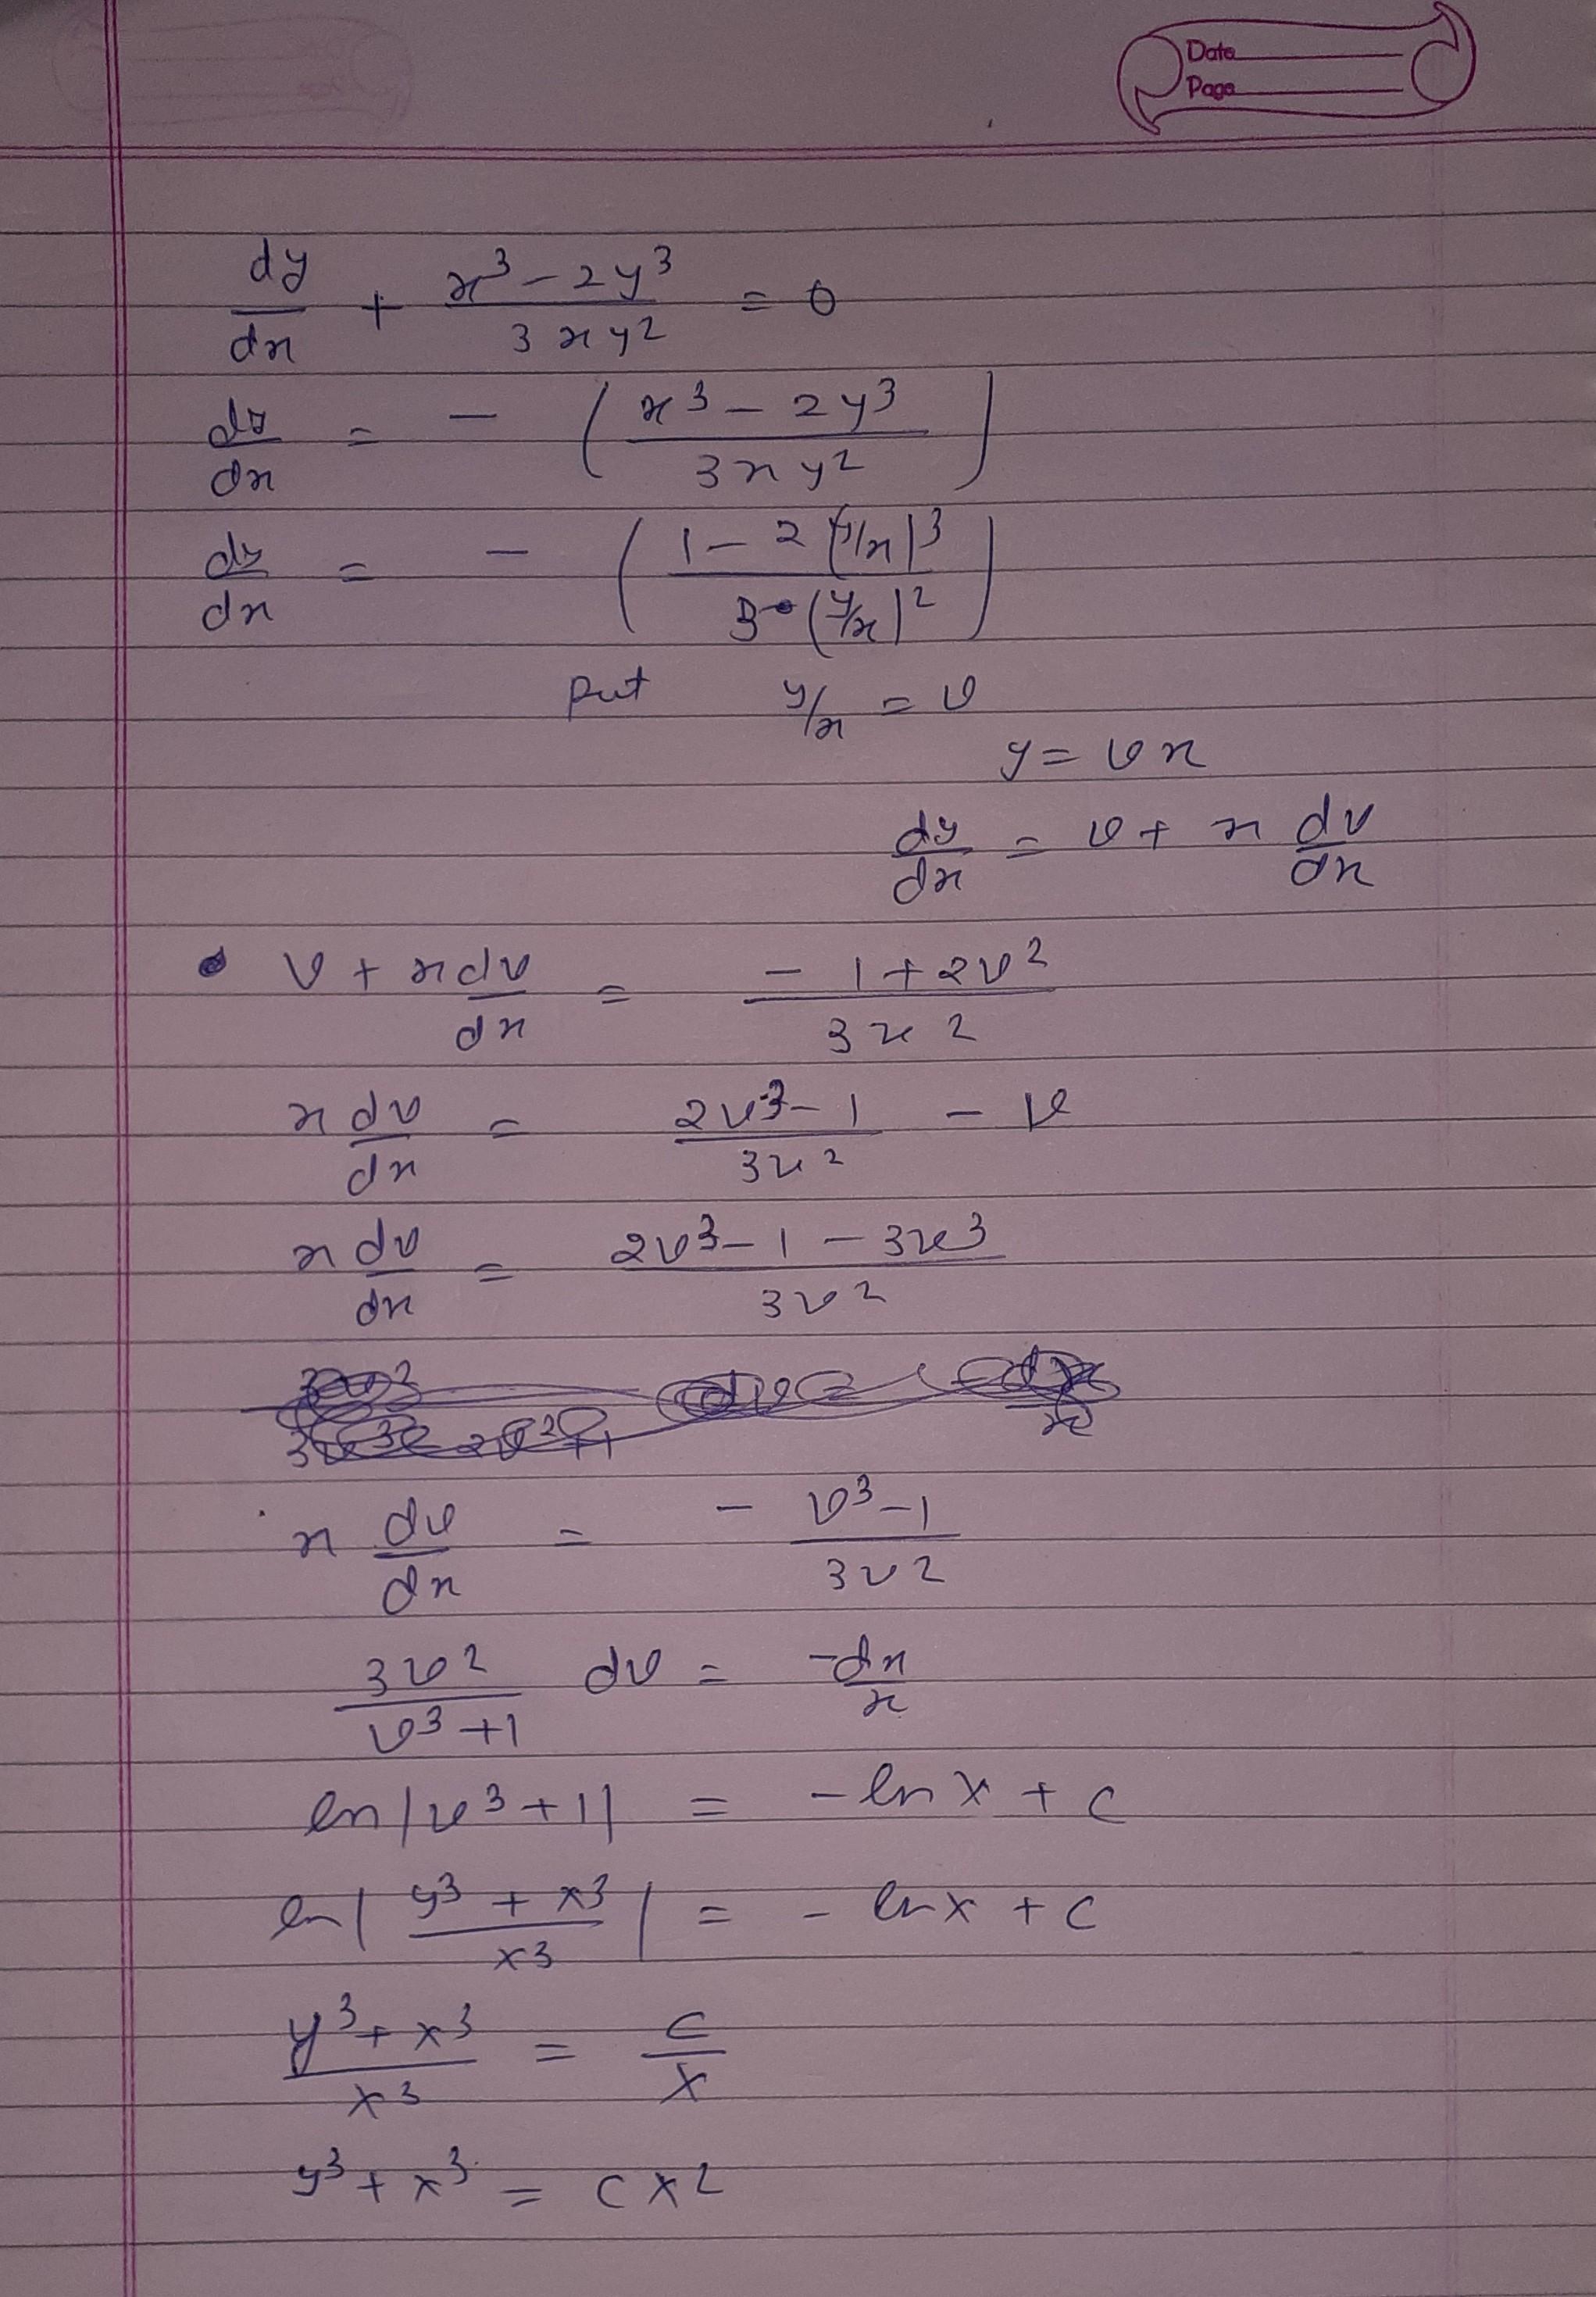 Date
Page
dy/dx + (x³ - 2y³)/(3xy²) = 0
dy/dx = - ( (x³ - 2y³)/(3xy²) )
dy/dx = - ( (1 - 2(y/x)³)/(3(y/x)²) )
put y/x = v
y = vx
dy/dx = v + x dv/dx
v + x dv/dx = (-1 + 2v²)/(3v²)
x dv/dx = (2v³ - 1)/(3v²) - v
x dv/dx = (2v³ - 1 - 3v³)/(3v²)
x dv/dx = (-v³ - 1)/(3v²)
(3v²)/(v³ + 1) dv = -dx/x
ln|v³ + 1| = - ln x + c
ln| (y³ + x³)/x³ | = - ln x + c
(y³ + x³)/x³ = c/x
y³ + x³ = cx²